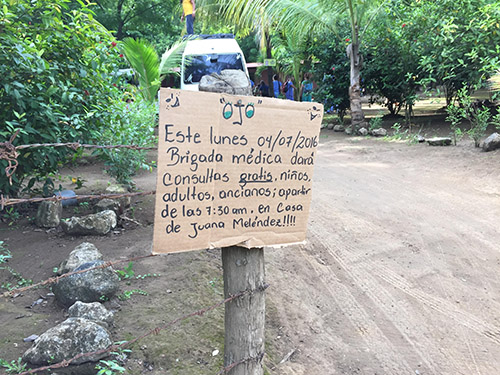 Ojo
Este lunes 04/07/2016
Brigada médica dará
consultas gratis, niños,
adultos, ancianos; apartir
de las 7:30am, en Casa
de Juana Meléndez!!!!